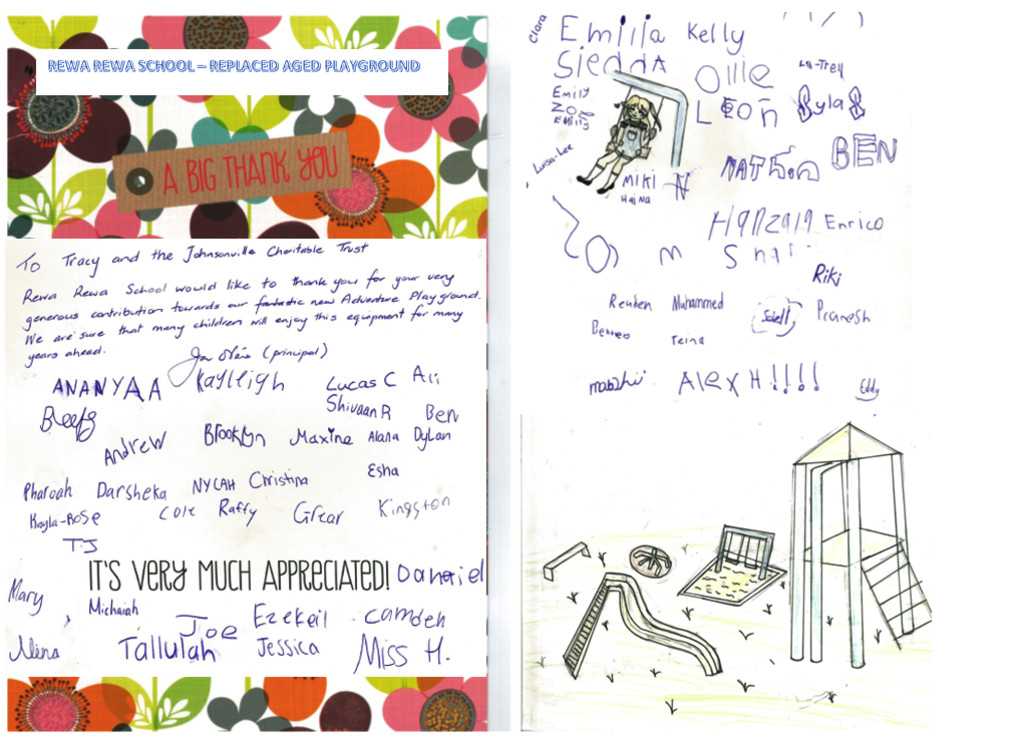 REWA REWA SCHOOL – REPLACED AGED PLAYGROUND
A BIG THANK YOU
To Tracy and the Johnsonville Charitable Trust
Rewa Rewa School would like to thank you for your very
generous contribution towards our fantastic new Adventure Playground.
We are sure that many children will enjoy this equipment for many
years ahead.
(principal)
ANANYAA Kayleigh Lucas C Ari
Shivaan R Ben
Andrew Brooklyn Maxine Alana Dylan
Esha
Pharoah Darsheka NYCAH Christina
Kayla-Rose Cole Raffy Kingston
TJ
IT'S VERY MUCH APPRECIATED! Daniel
Mary
Michaiah Joe Ezekeil Camden
Alina Tallulah Jessica Miss H.
Clara Emilia Kelly
Sienna Ollie
Emily
Zoe Leon
Emily
Luisa-Lee
NATHan BEN
Miki
Haina
Enrico
Riki
Reuben Muhammed Pranesh
Teina
Alex H!!!!
Eddy